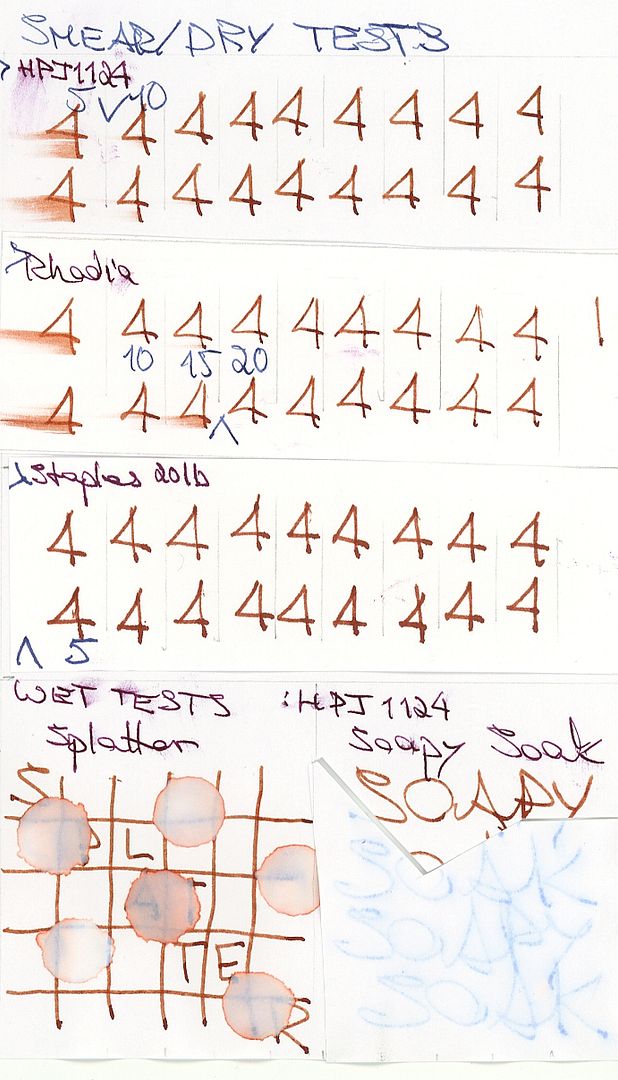 SMEAR/DRY TESTS
HPJ1124
5 10
4 4 4 4 4 4 4 4 4
4 4 4 4 4 4 4 4 4
Rhodia
4 4 4 4 4 4 4 4 4 1
10 15 20
4 4 4 4 4 4 4 4 4
Staples 20lb
4 4 4 4 4 4 4 4 4
4 4 4 4 4 4 4 4 4
5
WET TESTS :HPJ 1124
Splatter
Soapy Soak
SPLATTER
SOAPY
SOAK
SOAPY
SOAK